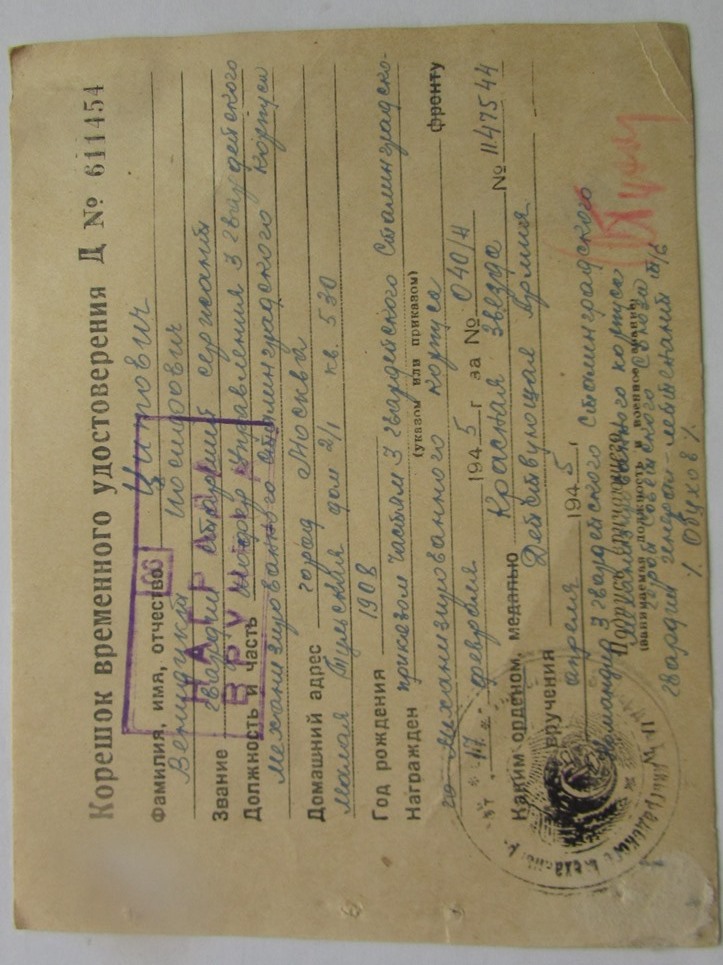 Корешок временного удостоверения Д № 611454
Фамилия, имя, отчество Цитович
Венидикт Иосифович
Звание гвардии старший сержант
Должность и часть шофер Управления 3 гвардейского
механизированного Сталинградского Корпуса
Домашний адрес город Москва
малая Тульская дом 2/1 кв. 530
Год рождения 1908
Награжден приказом частям 3 гвардейского Сталинградско-
(указом или приказом) фронту
го механизированного корпуса
от "17" февраля 1945 г за № 040/н
Каким орденом, медалью Красная Звезда № 1147544
вручения Действующая Армия
апреля 1945 г
Командир 3 гвардейского Сталинградского
механизированного корпуса
Подпись вручающего
Герой Советского Союза
(занимаемая должность и военное звание)
гвардии генерал-лейтенант т/в
/ Обухов /
НАГРАДА
ВРУЧЕНА